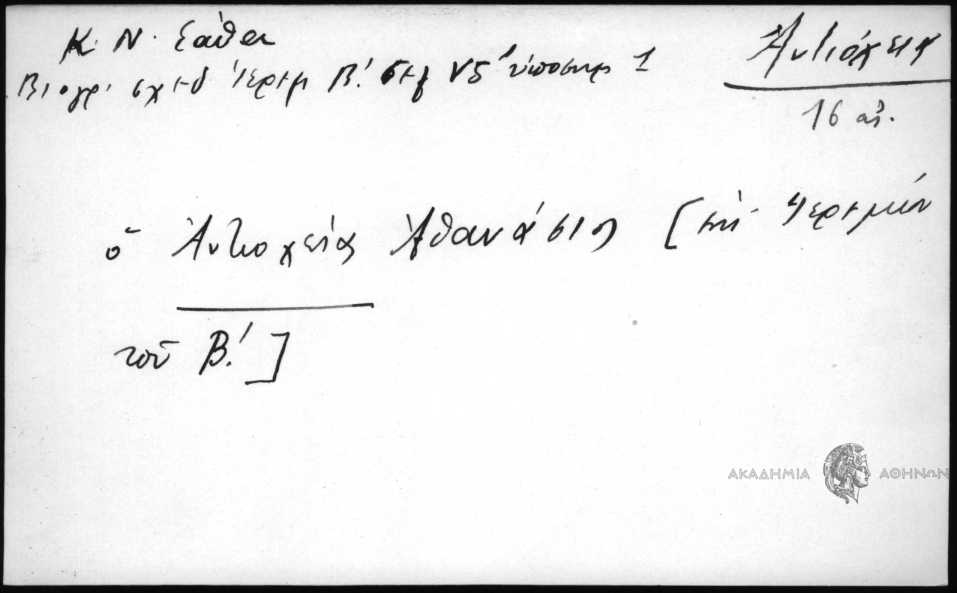 Κ. Ν. Σάθα
Βιογρ. σχεδ Ἱερεμ Β! σελ νξ' ὑποσημ 1
Ἀντιόχεια
16 αἰ.
ὁ Ἀντιοχείας Ἀθανάσιος [ἐπὶ Ἱερεμίου
τοῦ Β!]
ΑΚΑΔΗΜΙΑ ΑΘΗΝΩΝ